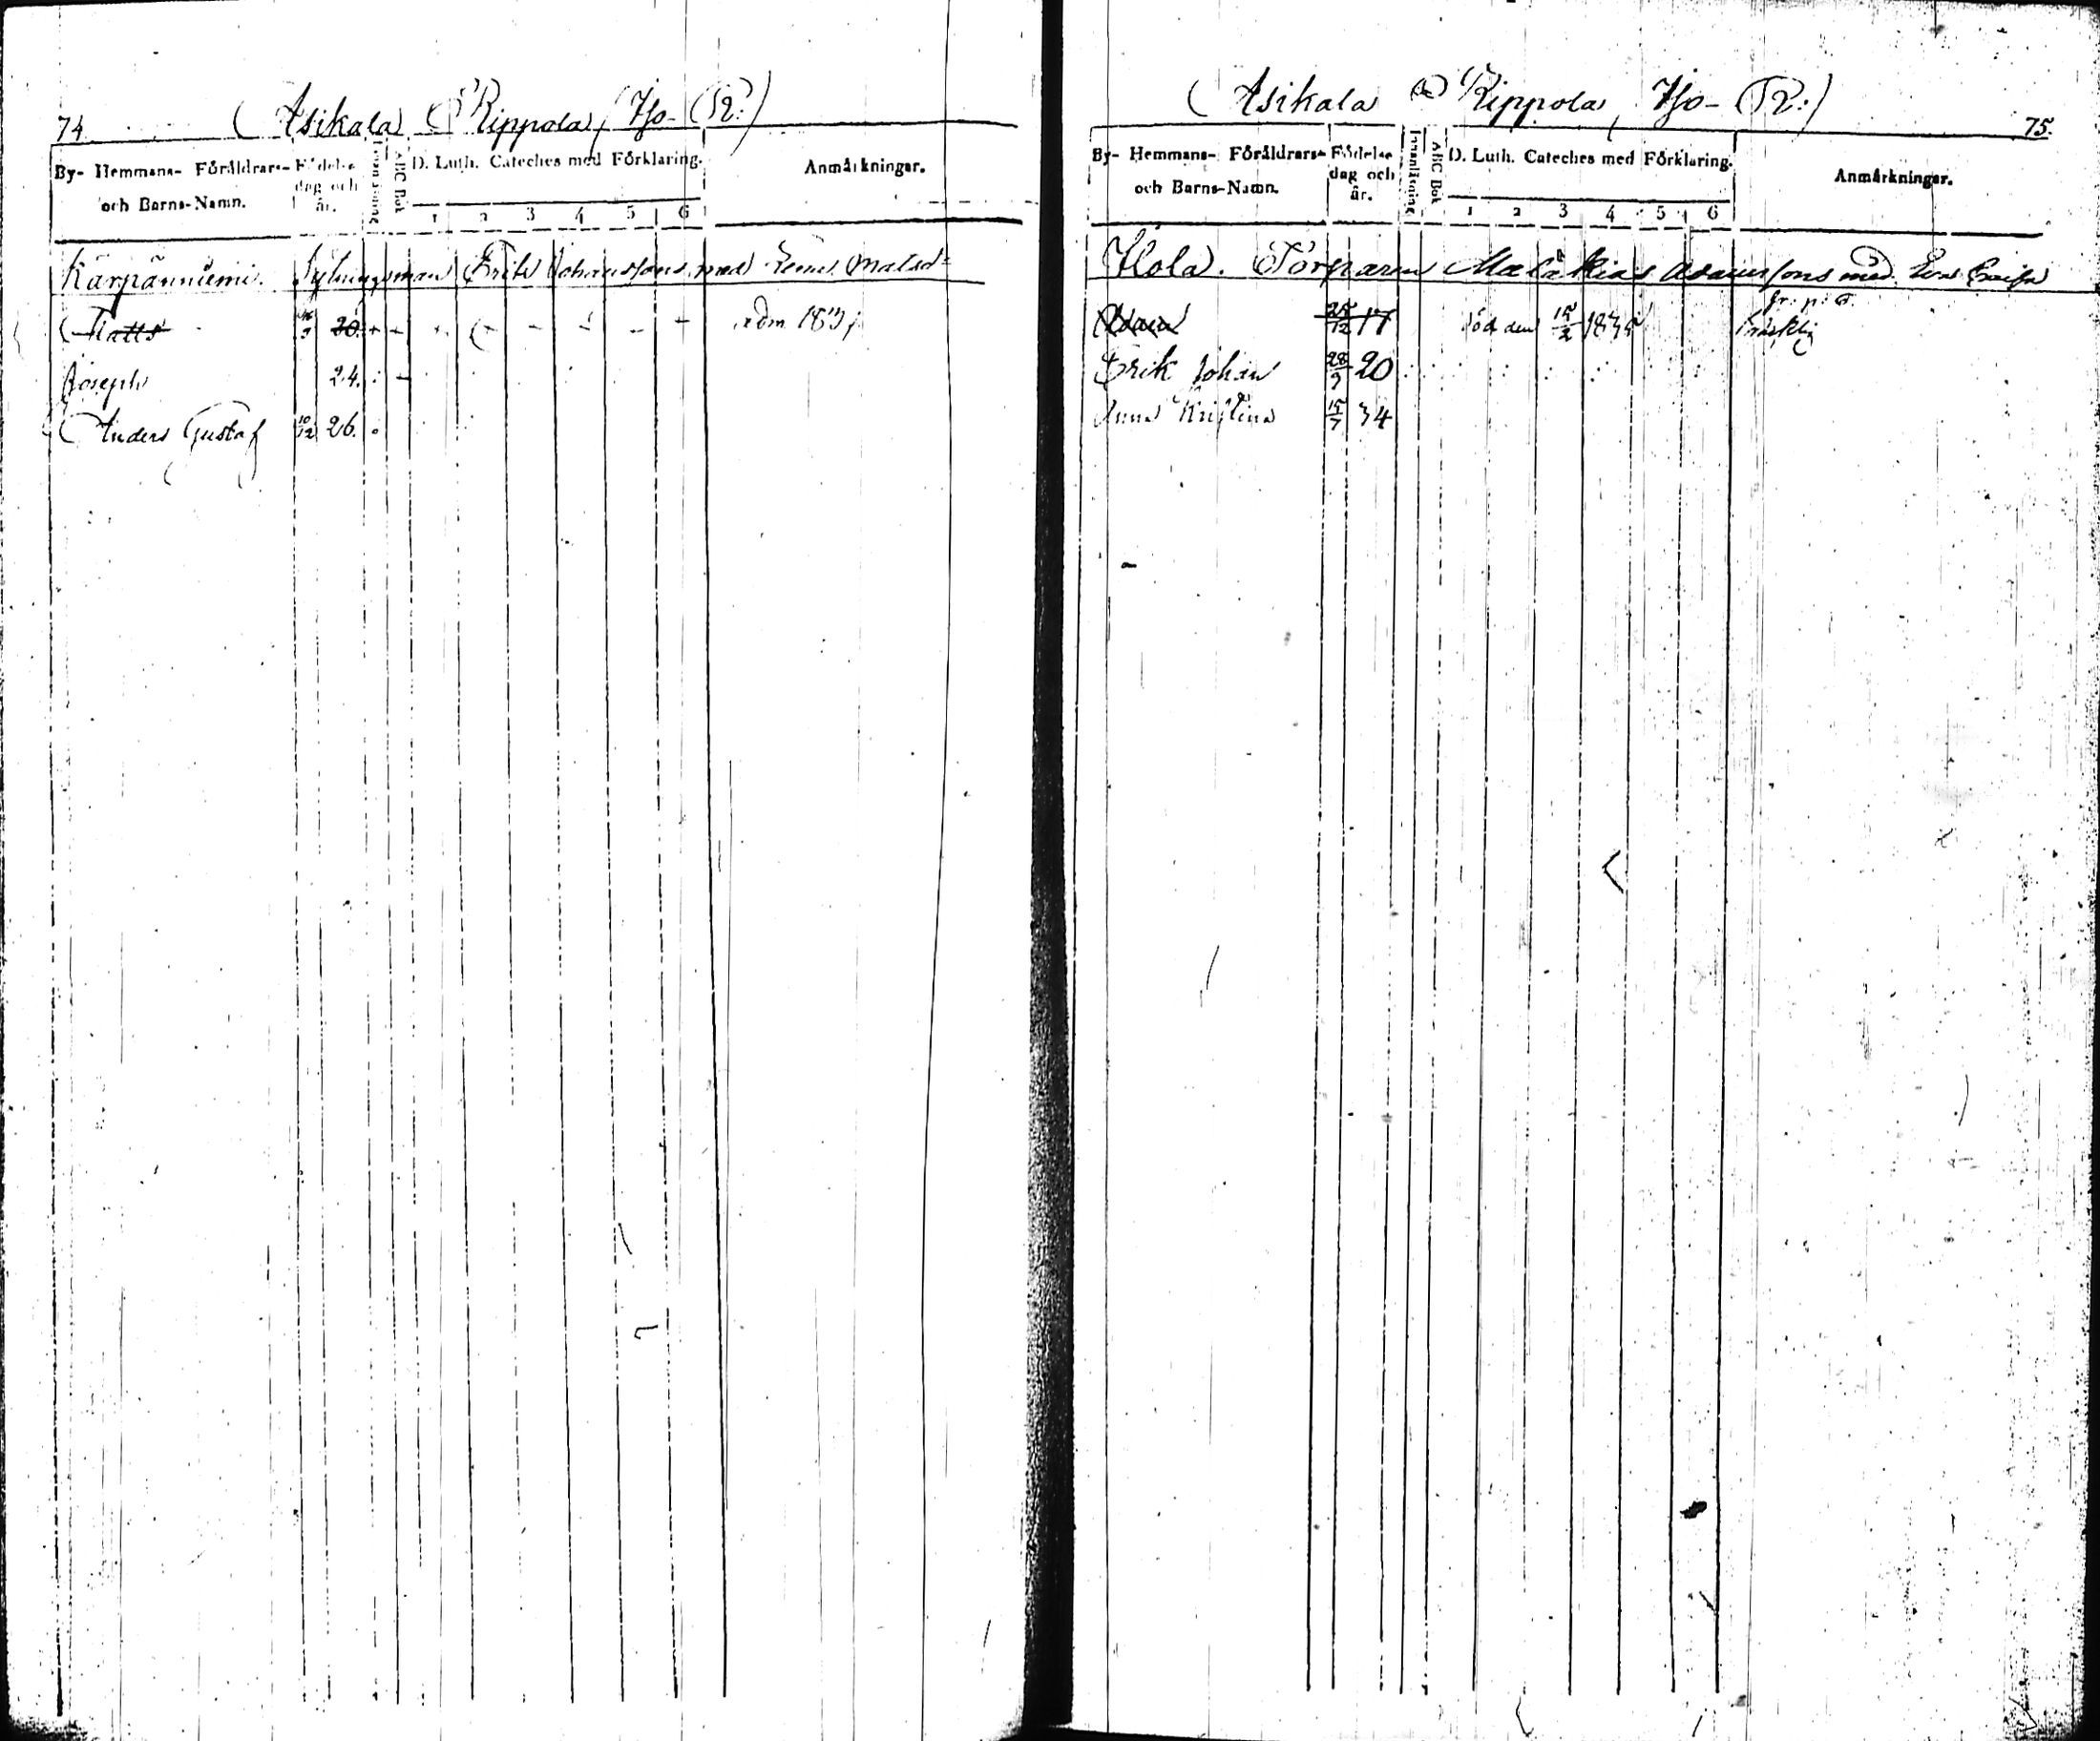 74
Asikala Kippola, Yjo (R:)
By- Hemmans- Föräldrars- och Barns-Namn.
Födelse dag och år.
Innanläsning
ABC Bok
D. Luth. Cateches med Förklaring.
1 2 3 4 5 6
Anmärkningar.
Kärpänniemi. Erik Johansons med
Matts 20.
Joseph 24.
Anders Gustaf 10/12 26.
75.
Asikala Kippola, Yjo (R:)
By- Hemmans- Föräldrars- och Barns-Namn.
Födelse dag och år.
Innanläsning
ABC Bok
D. Luth. Cateches med Förklaring.
1 2 3 4 5 6
Anmärkningar.
Torparen Malakias Adamssons med
25/12 17 död den 15/2
Erik Johan 28/9 20
Anna Kristina 15/7 34